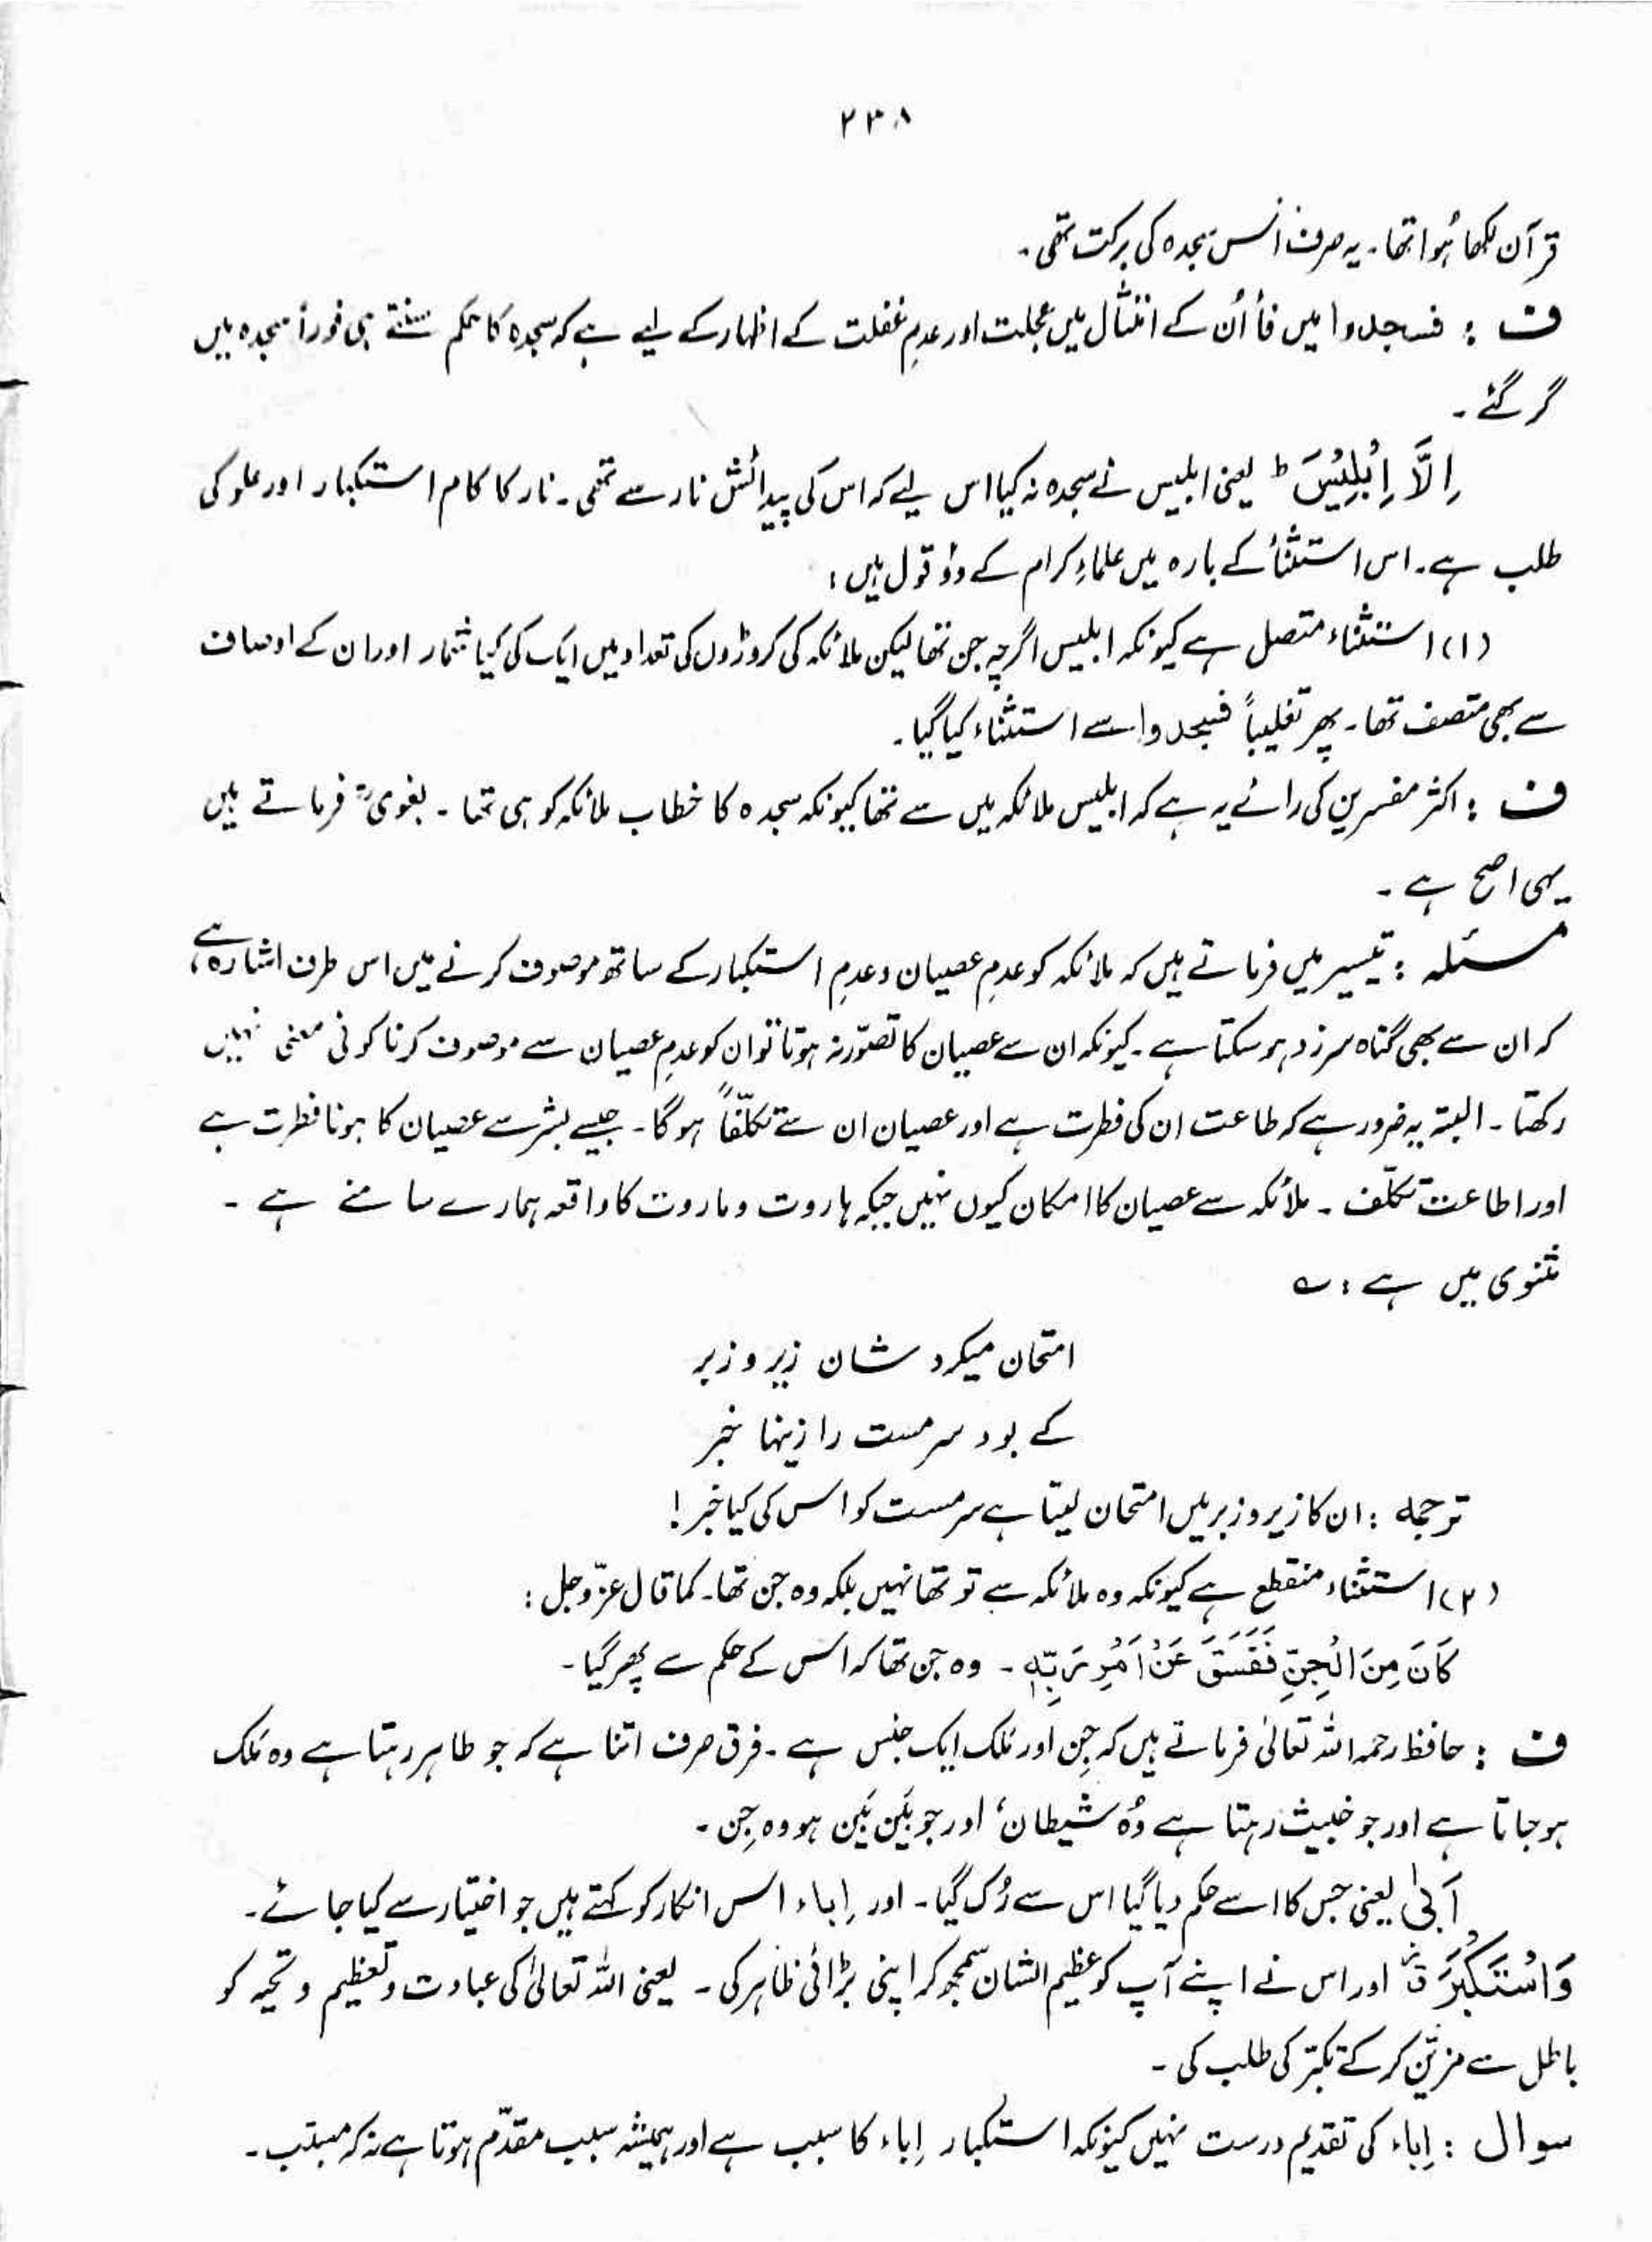 ۲۳۸
قرآن لکھا ہُوا تھا۔ یہ صرف اُس سجدہ کی برکت تھی۔
ف : فسجدوا میں فأ اُن کے امتثال میں عجلت اور عدمِ غفلت کے اظہار کے لیے ہے کہ سجدہ کا حکم سنتے ہی فوراً سجدہ میں
گر گئے۔
اِلَّا اِبْلِیْسَ ؕ یعنی ابلیس نے سجدہ نہ کیا اس لیے کہ اس کی پیدائش نار سے تھی۔ نار کا کام استکبار اور علو کی
طلب ہے۔ اس استثنأ کے بارہ میں علماءِ کرام کے دوؤ قول ہیں :
(۱) استثناء متصل ہے کیونکہ ابلیس اگرچہ جن تھا لیکن ملائکہ کی کروڑوں کی تعداد میں ایک کی کیا شمار اور ان کے اوصاف
سے بھی متصف تھا۔ پھر تغلیباً فسجدوا سے استثناء کیا گیا۔
ف : اکثر مفسرین کی رائے یہ ہے کہ ابلیس ملائکہ میں سے تھا کیونکہ سجدہ کا خطاب ملائکہ کو ہی تھا۔ بغویؒ فرماتے ہیں
یہی اصح ہے۔
مسئلہ : تیسیر میں فرماتے ہیں کہ ملائکہ کو عدمِ عصیان و عدمِ استکبار کے ساتھ موصوف کرنے میں اس طرف اشارہ ہے،
کہ ان سے بھی گناہ سرزد ہو سکتا ہے۔ کیونکہ ان سے عصیان کا تصوّر نہ ہوتا تو ان کو عدمِ عصیان سے موصوف کرنا کوئی معنی نہیں
رکھتا۔ البتہ یہ ضرور ہے کہ طاعت ان کی فطرت ہے اور عصیان ان سے تکلّفاً ہو گا۔ جیسے بشر سے عصیان کا ہونا فطرت ہے
اور اطاعت تکلّف۔ ملائکہ سے عصیان کا امکان کیوں نہیں جبکہ ہاروت و ماروت کا واقعہ ہمارے سامنے ہے۔
مثنوی میں ہے : ؎
امتحان میکرد شان زیر و زبر
کے بود سرمست را زینہا خبر
ترجمہ : ان کا زیر و زبر میں امتحان لیتا ہے سرمست کو اس کی کیا خبر!
(۲) استثناء منقطع ہے کیونکہ وہ ملائکہ سے تو تھا نہیں بلکہ وہ جن تھا۔ کما قال عزّ و جل :
کَانَ مِنَ الْجِنِّ فَفَسَقَ عَنْ اَمْرِ رَبِّہٖ۔ وہ جن تھا کہ اس کے حکم سے پھر گیا۔
ف : حافظ رحمہ اللہ تعالیٰ فرماتے ہیں کہ جِن اور مَلک ایک جنس ہے۔ فرق صرف اتنا ہے کہ جو طاہر رہتا ہے وہ مَلک
ہو جاتا ہے اور جو خبیث رہتا ہے وُہ شیطان، اور جو بَین بَین ہو وہ جِن۔
اَبٰی یعنی جس کا اسے حکم دیا گیا اس سے رُک گیا۔ اور اِباء اس انکار کو کہتے ہیں جو اختیار سے کیا جائے۔
وَاسْتَکْبَرَ ق اور اس نے اپنے آپ کو عظیم الشان سمجھ کر اپنی بڑائی ظاہر کی۔ یعنی اللہ تعالیٰ کی عبادت و تعظیم و تحیہ کو
باطل سے مزیّن کر کے تکبّر کی طلب کی۔
سوال : اِباء کی تقدیم درست نہیں کیونکہ استکبار اِباء کا سبب ہے اور ہمیشہ سبب مقدّم ہوتا ہے نہ کہ مسبّب۔